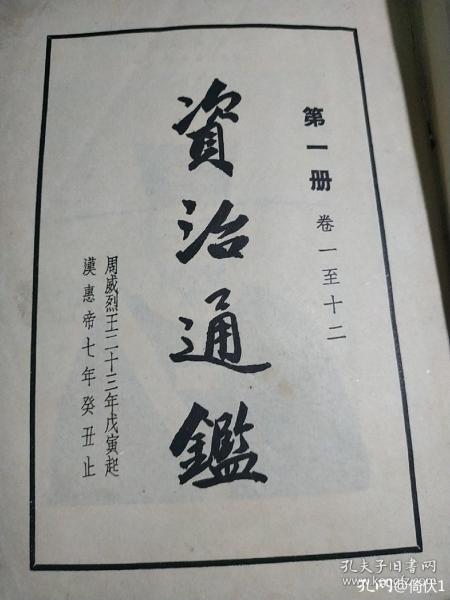 第一册 卷一至十二
資治通鑑
周威烈王二十三年戊寅起
漢惠帝七年癸丑止
孔夫子旧书网
孔网@倚伏1